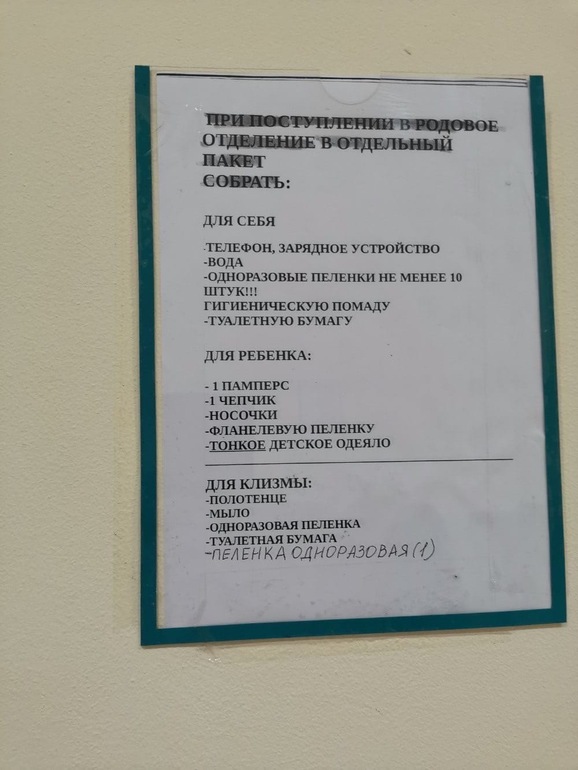 ПРИ ПОСТУПЛЕНИИ В РОДОВОЕ
ОТДЕЛЕНИЕ В ОТДЕЛЬНЫЙ
ПАКЕТ
СОБРАТЬ:
ДЛЯ СЕБЯ
-ТЕЛЕФОН, ЗАРЯДНОЕ УСТРОЙСТВО
-ВОДА
-ОДНОРАЗОВЫЕ ПЕЛЕНКИ НЕ МЕНЕЕ 10
ШТУК!!!
ГИГИЕНИЧЕСКУЮ ПОМАДУ
-ТУАЛЕТНУЮ БУМАГУ
ДЛЯ РЕБЕНКА:
- 1 ПАМПЕРС
-1 ЧЕПЧИК
-НОСОЧКИ
-ФЛАНЕЛЕВУЮ ПЕЛЕНКУ
-ТОНКОЕ ДЕТСКОЕ ОДЕЯЛО
ДЛЯ КЛИЗМЫ:
-ПОЛОТЕНЦЕ
-МЫЛО
-ОДНОРАЗОВАЯ ПЕЛЕНКА
-ТУАЛЕТНАЯ БУМАГА
-ПЕЛЕНКА ОДНОРАЗОВАЯ (1)